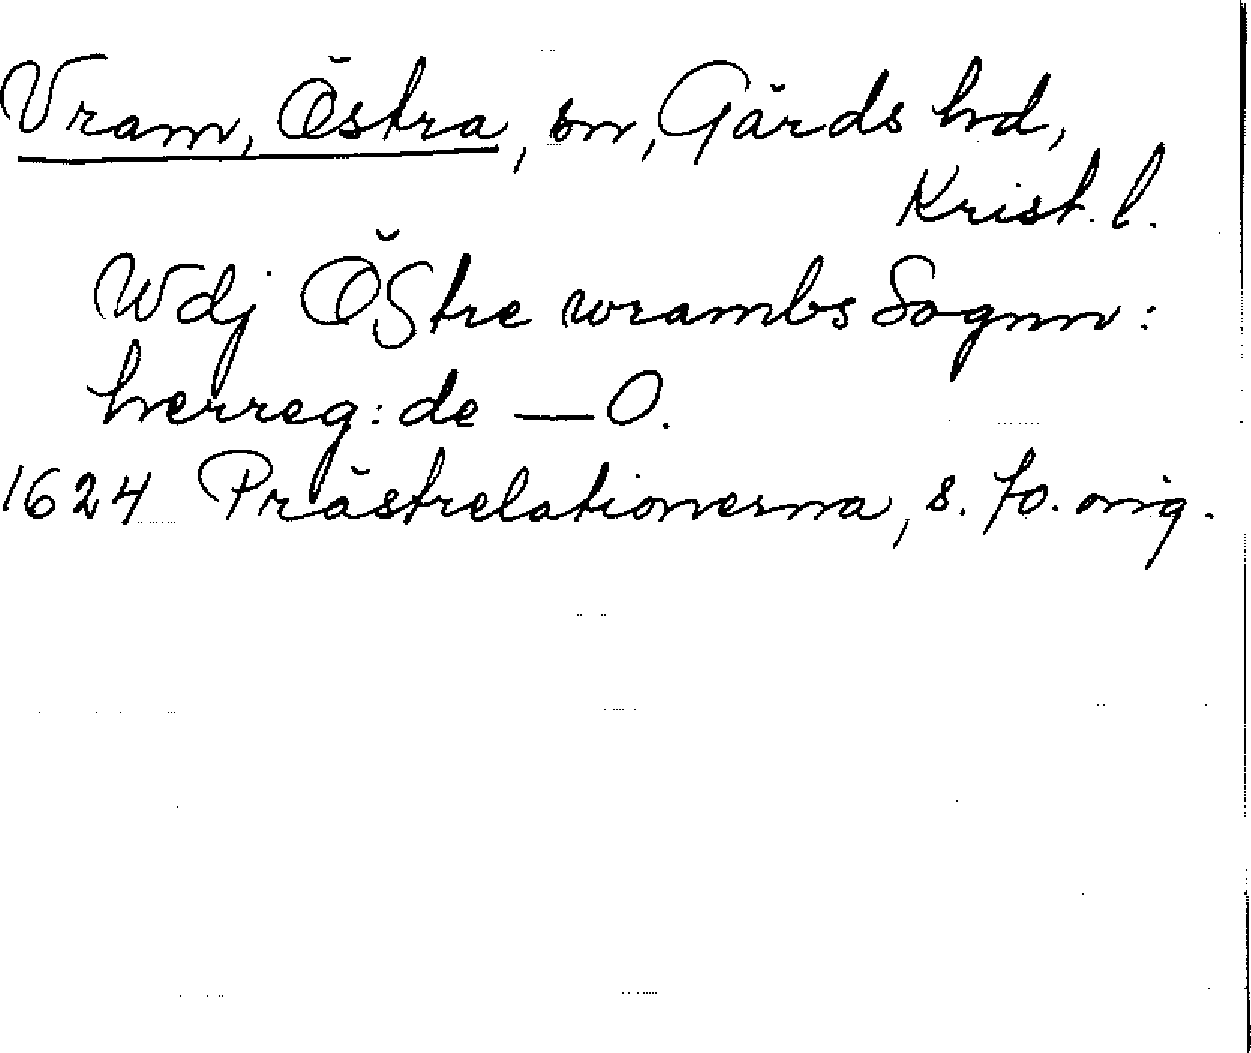 Vram, Östra, sn, Gärds hd,
Krist. l.
Wdj ÖStre wrambs Sognn:
herreg: de — 0.
1624 Prästrelationerna, s. 70. orig.